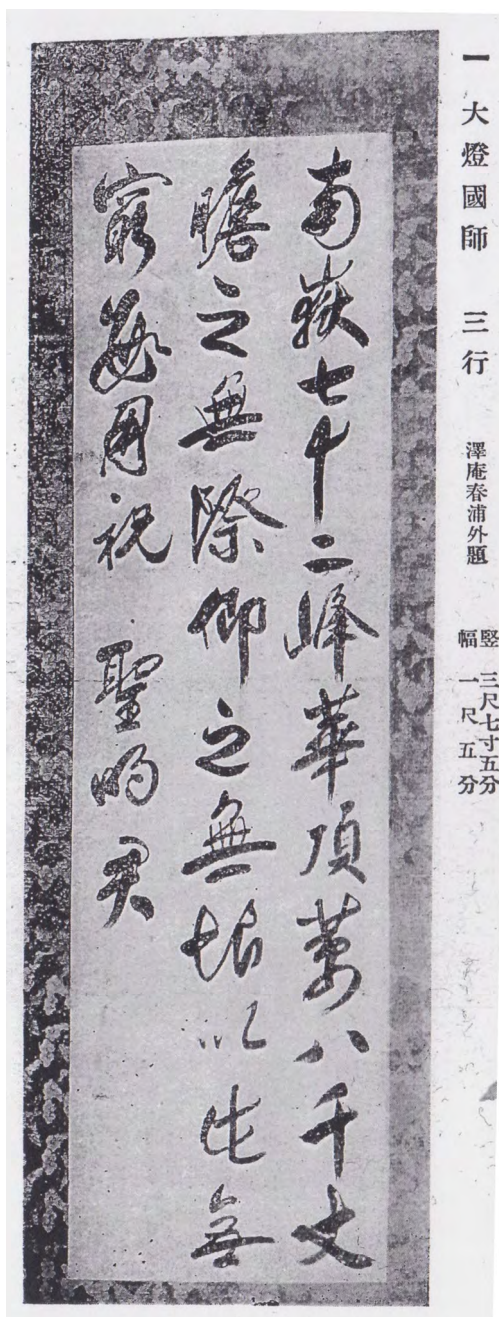 一 大燈國師 三行 澤庵春浦外題
竪 三尺七寸五分
幅 一尺五分
南嶽七十二峰華頂萬八千丈
瞻之無際仰之無垠以此無
窮數用祝 聖明君